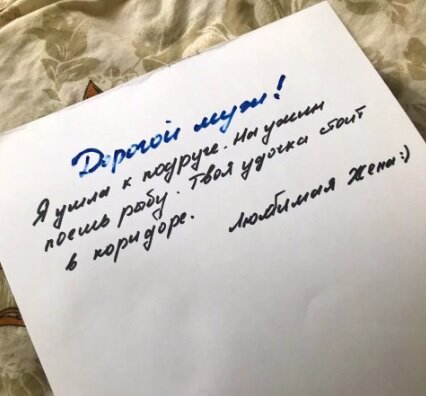 Дорогой муж!
Я ушла к подруге. На ужин
поешь рыбу. Твоя удочка стоит
в коридоре.
Любимая Жена:)